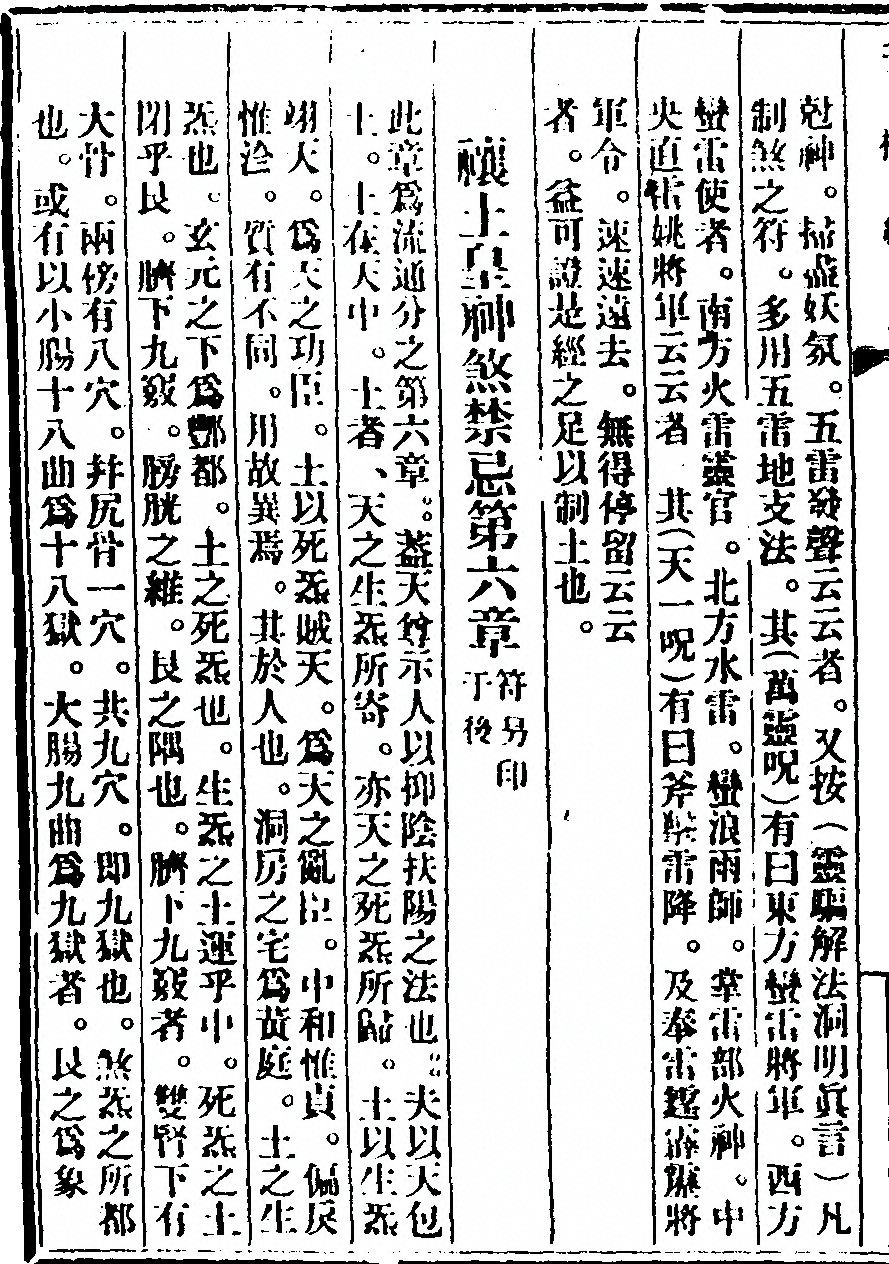 尅神。掃盪妖氛。五雷發聲云云者。又按（靈驅解法洞明眞言）凡
制煞之符。多用五雷地支法。其（萬靈呪）有曰東方蠻雷將軍。西方
蠻雷使者。南方火雷靈官。北方水雷。蠻浪雨師。掌雷部火神。中
央直雷姚將軍云云者 其（天一呪）有曰斧擊雷降。及奉雷霆將
軍令。速速遠去。無得停留云云
者。益可證是經之足以制土也。
禳土皇神煞禁忌第六章
符另印
于後
此章爲流通分之第六章。蓋天尊示人以抑陰扶陽之法也。夫以天包
土。土在天中。土者、天之生炁所寄。亦天之死炁所歸。土以生炁
翊天。爲天之功臣。土以死炁賊天。爲天之亂臣。中和惟貞。偏戾
惟沴。質有不同。用故異焉。其於人也。洞房之宅爲黃庭。土之生
炁也。玄元之下爲酆都。土之死炁也。生炁之土運乎中。死炁之土
閉乎艮。臍下九竅。膀胱之維。艮之隅也。臍下九竅者。雙腎下有
大骨。兩傍有八穴。幷尻骨一穴。共九穴。即九獄也。煞炁之所都
也。或有以小腸十八曲爲十八獄。大腸九曲爲九獄者。艮之爲象